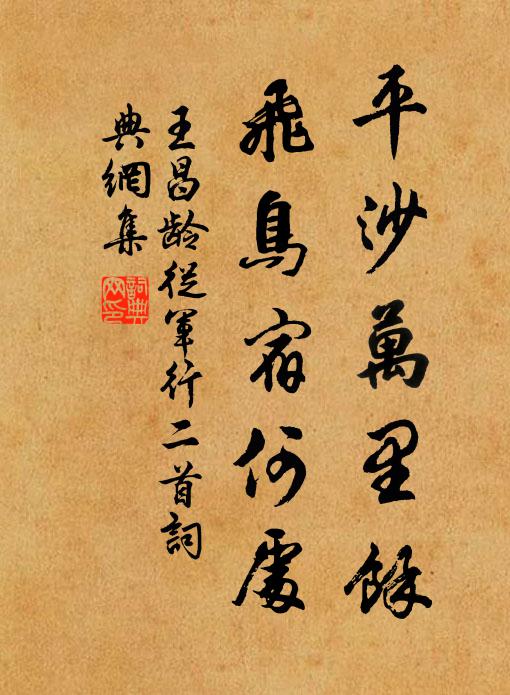 平沙萬里餘
飛鳥宿何處
王昌齡從軍行二首詞
典網集
詞典網印